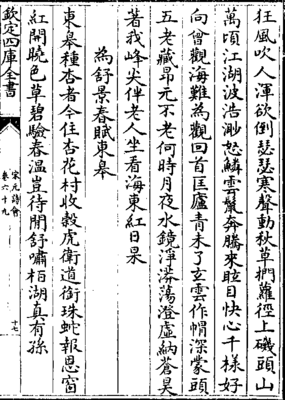 狂風吹人渾欲倒瑟瑟寒聲動秋草捫蘿徑上磯頭山
萬頃江湖波浩渺怒鱗雲鬣奔騰來眩目快心千様好
向曾觀海難為觀回首匡廬青未了玄雲作帽深蒙頭
五老藏昂元不老何時月夜水鏡淨漭蕩澄虛納蒼昊
著我峰尖伴老人坐看海東紅日杲
為舒景春賦東皋
東皋種杏者今住杏花村收穀虎衛道銜珠蛇報恩窗
紅開曉色草碧驗春温豈待閒舒嘯栢湖真有孫
欽定四庫全書
宋元詩會
卷六十九
十七